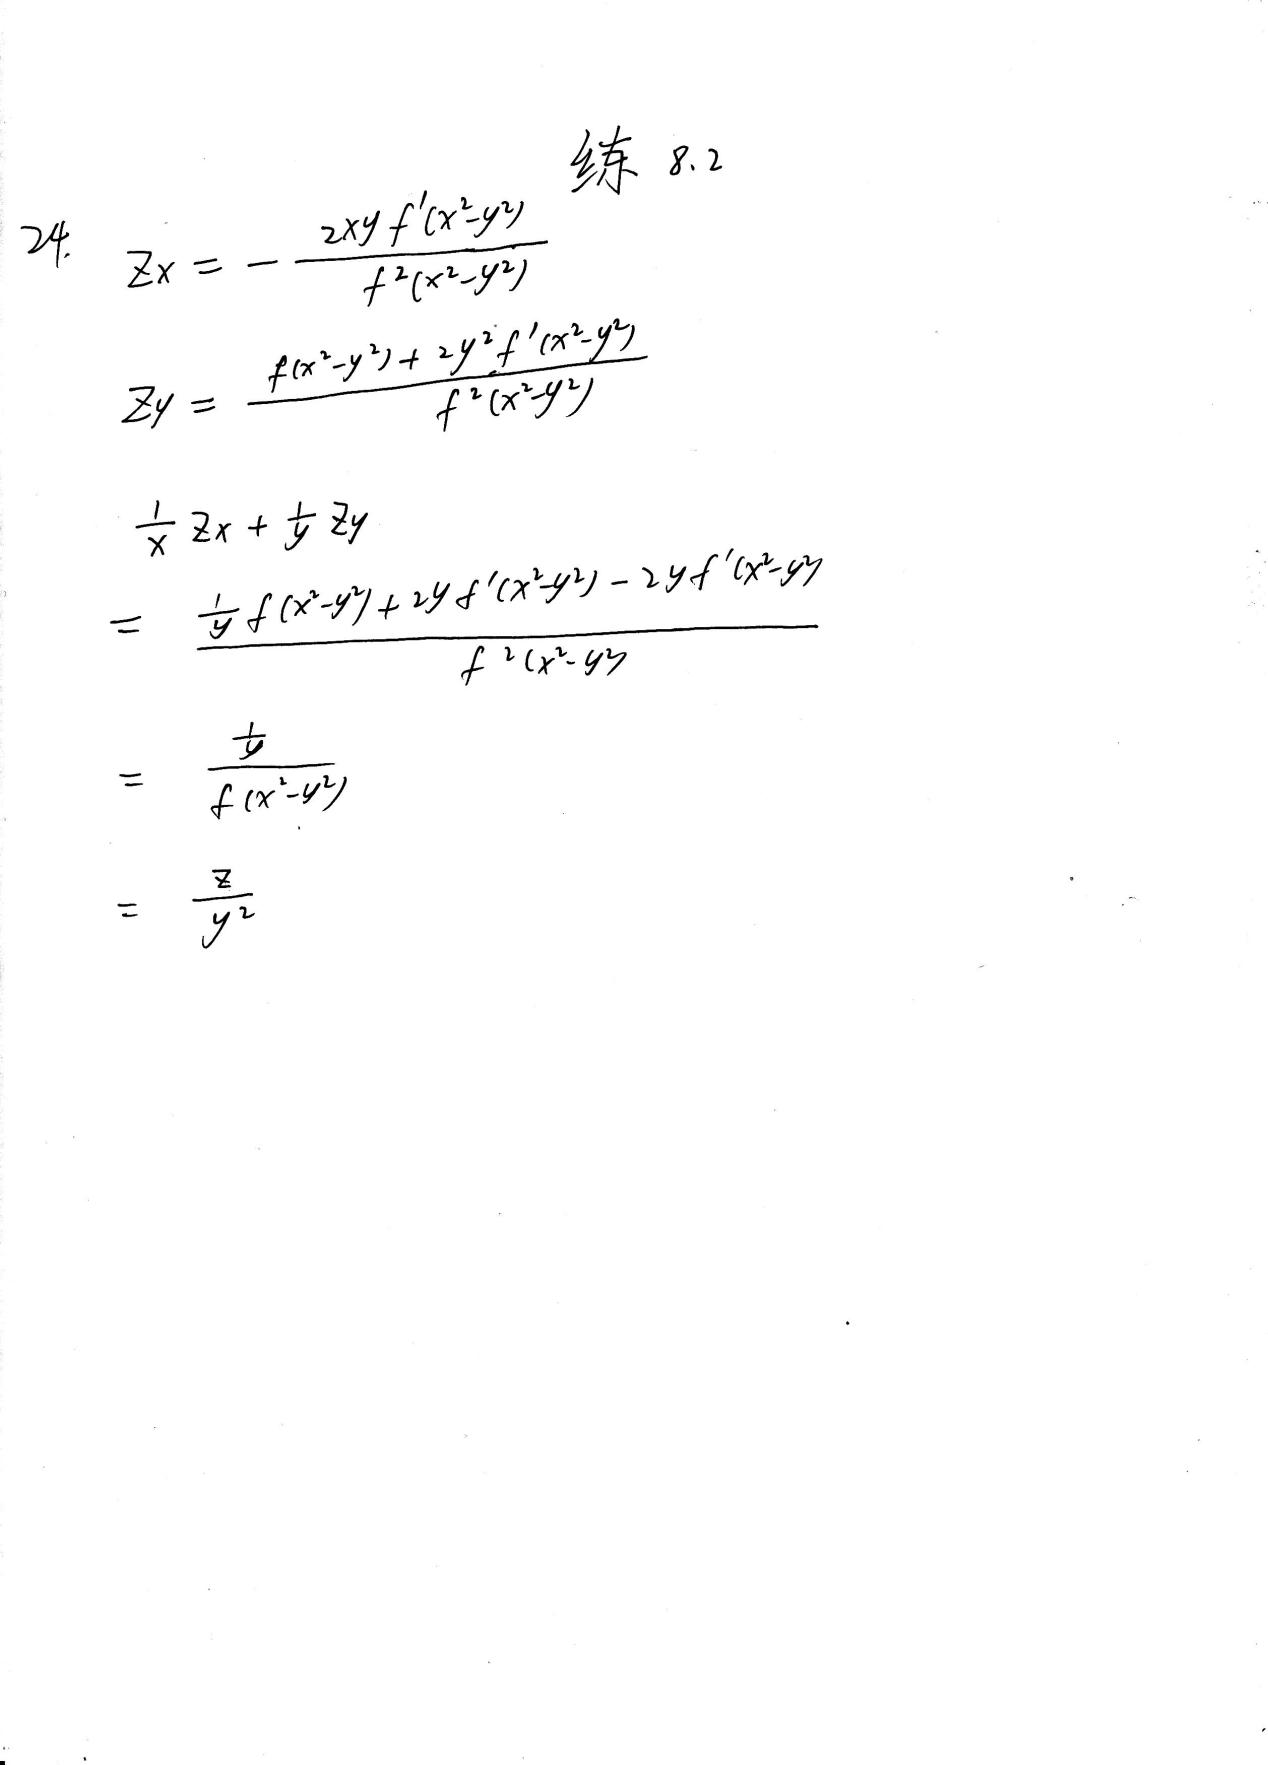 练 8.2
24. Zx = - \frac{2xy f'(x²-y²)}{f²(x²-y²)}
Zy = \frac{f(x²-y²) + 2y² f'(x²-y²)}{f²(x²-y²)}
\frac{1}{x} Zx + \frac{1}{y} Zy
= \frac{\frac{1}{y} f(x²-y²) + 2y f'(x²-y²) - 2y f'(x²-y²)}{f²(x²-y²)}
= \frac{\frac{1}{y}}{f(x²-y²)}
= \frac{z}{y²}